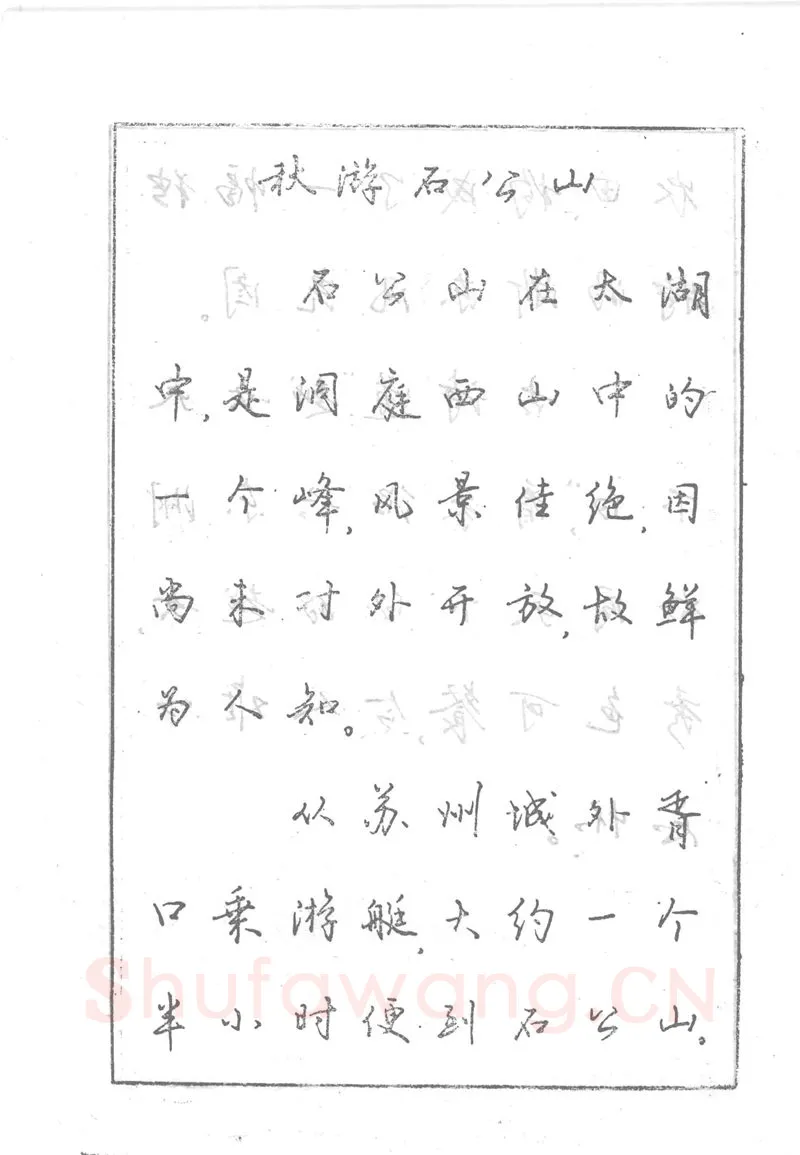 秋游石公山
石公山在太湖
中,是洞庭西山中的
一个峰,风景佳绝,因
尚未对外开放,故鲜
为人知。
从苏州城外胥
口乘游艇,大约一个
半小时便到石公山。
Shufawang.CN